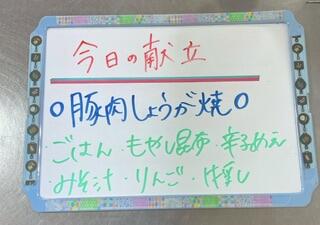 今日の献立
○豚肉しょうが焼○
・ごはん・もやし昆布・辛子あえ
・みそ汁・りんご・牛乳